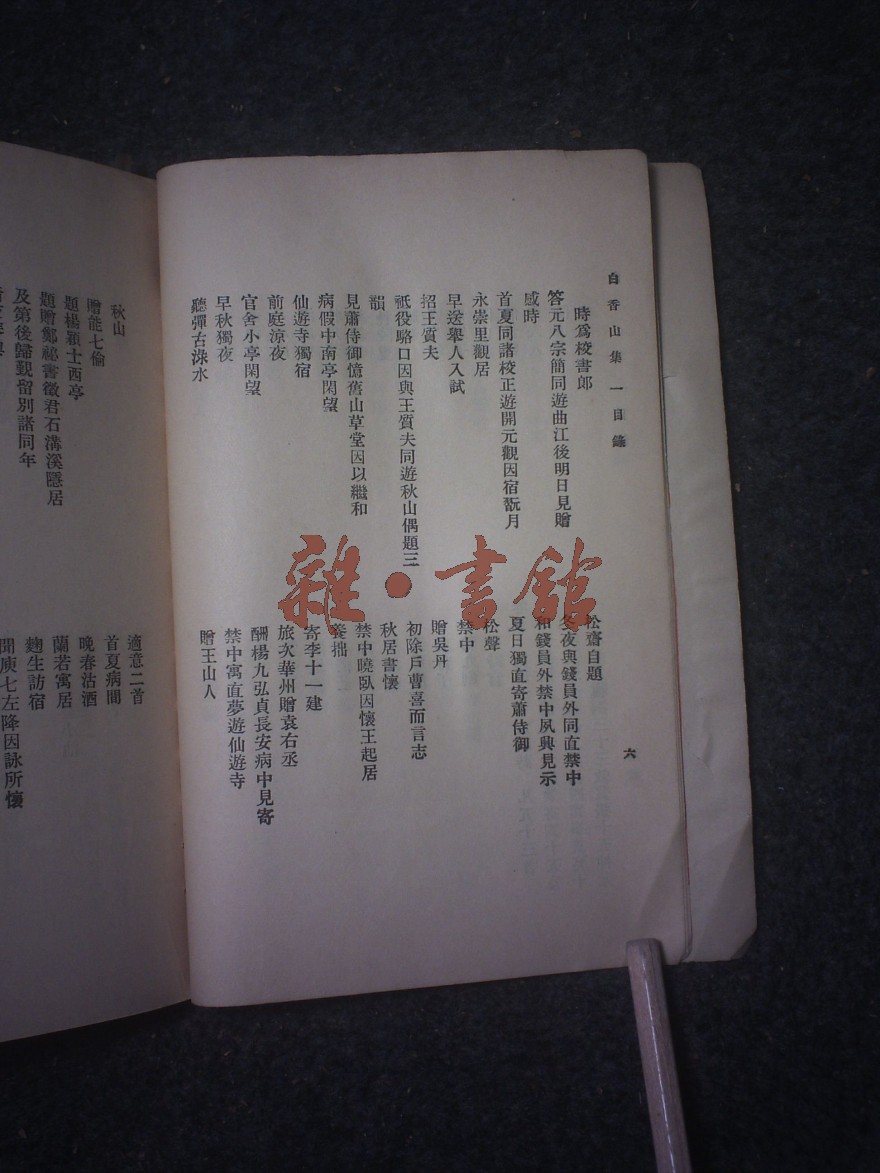 白香山集 一 目錄
六
時為校書郎
答元八宗簡同遊曲江後明日見贈
感時
首夏同諸校正遊開元觀因宿翫月
永崇里觀居
早送舉人入試
招王質夫
祗役駱口因與王質夫同遊秋山偶題三
韻
見蕭侍御憶舊山草堂因以繼和
病假中南亭閑望
仙遊寺獨宿
前庭涼夜
官舍小亭閑望
早秋獨夜
聽彈古淥水
松齋自題
冬夜與錢員外同直禁中
和錢員外禁中夙興見示
夏日獨直寄蕭侍御
松聲
禁中
贈吳丹
初除戶曹喜而言志
秋居書懷
禁中曉臥因懷王起居
養拙
寄李十一建
旅次華州贈袁右丞
酬楊九弘貞長安病中見寄
禁中寓直夢遊仙遊寺
贈王山人
秋山
贈能七倫
題楊穎士西亭
題贈鄭祕書徵君石溝溪隱居
及第後歸覲留別諸同年
適意二首
首夏病間
晚春沽酒
蘭若寓居
麴生訪宿
聞庾七左降因詠所懷
雜·書館